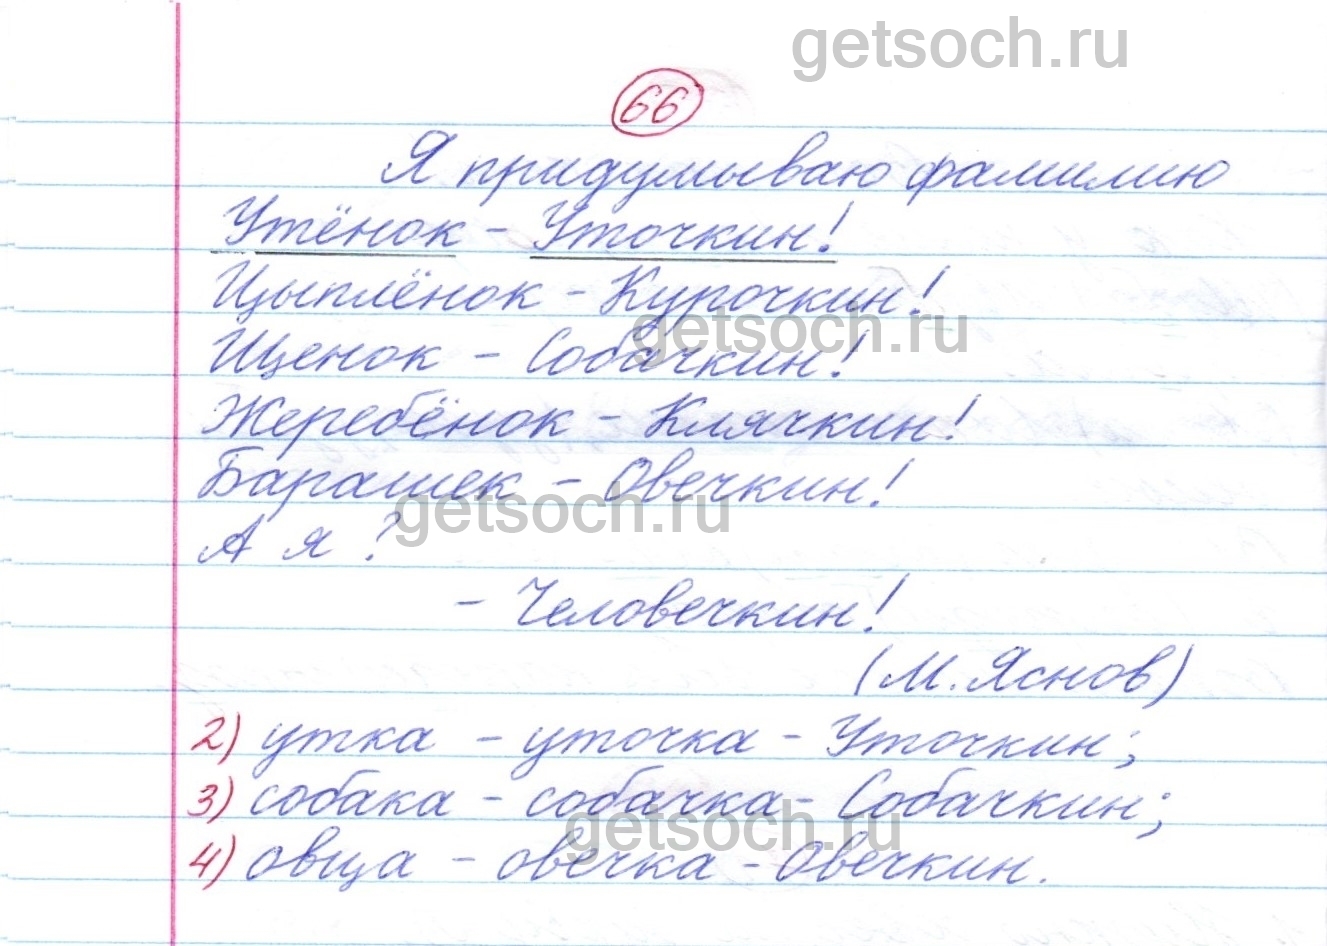 getsoch.ru
66
Я придумываю фамилию
Утёнок - Уточкин!
Цыплёнок - Курочкин!
getsoch.ru
Щенок - Собачкин!
Жеребёнок - Клячкин!
Барашек - Овечкин!
getsoch.ru
А я ?
- Человечкин!
(М. Яснов)
2) утка - уточка - Уточкин;
3) собака - собачка - Собачкин;
getsoch.ru
4) овца - овечка - Овечкин.